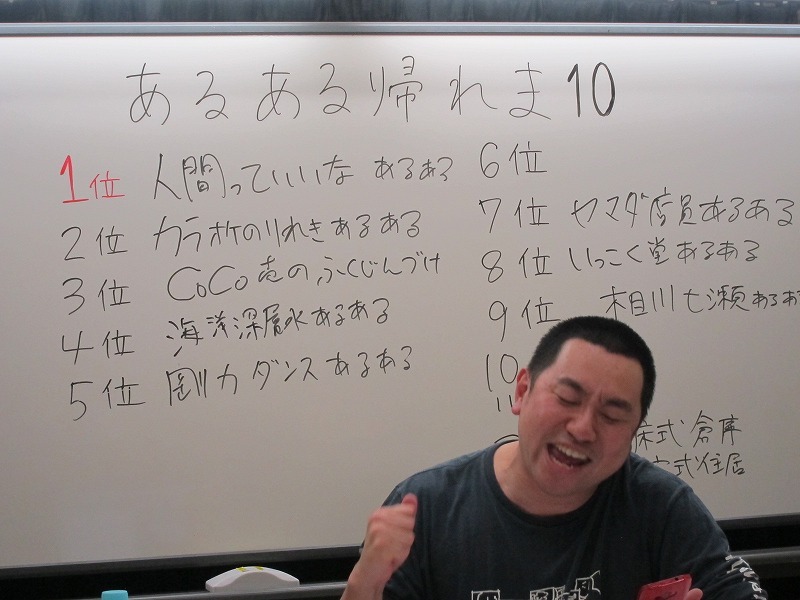 あるある帰れま10
1位 人間っていいな あるある
2位 カラオケのりれきあるある
3位 CoCo壱のふくじんづけ
4位 海洋深層水あるある
5位 剛力ダンスあるある
6位
7位 ヤマダ店員あるある
8位 いっこく堂あるある
9位 相川七瀬あるある
10
式倉庫
式住居